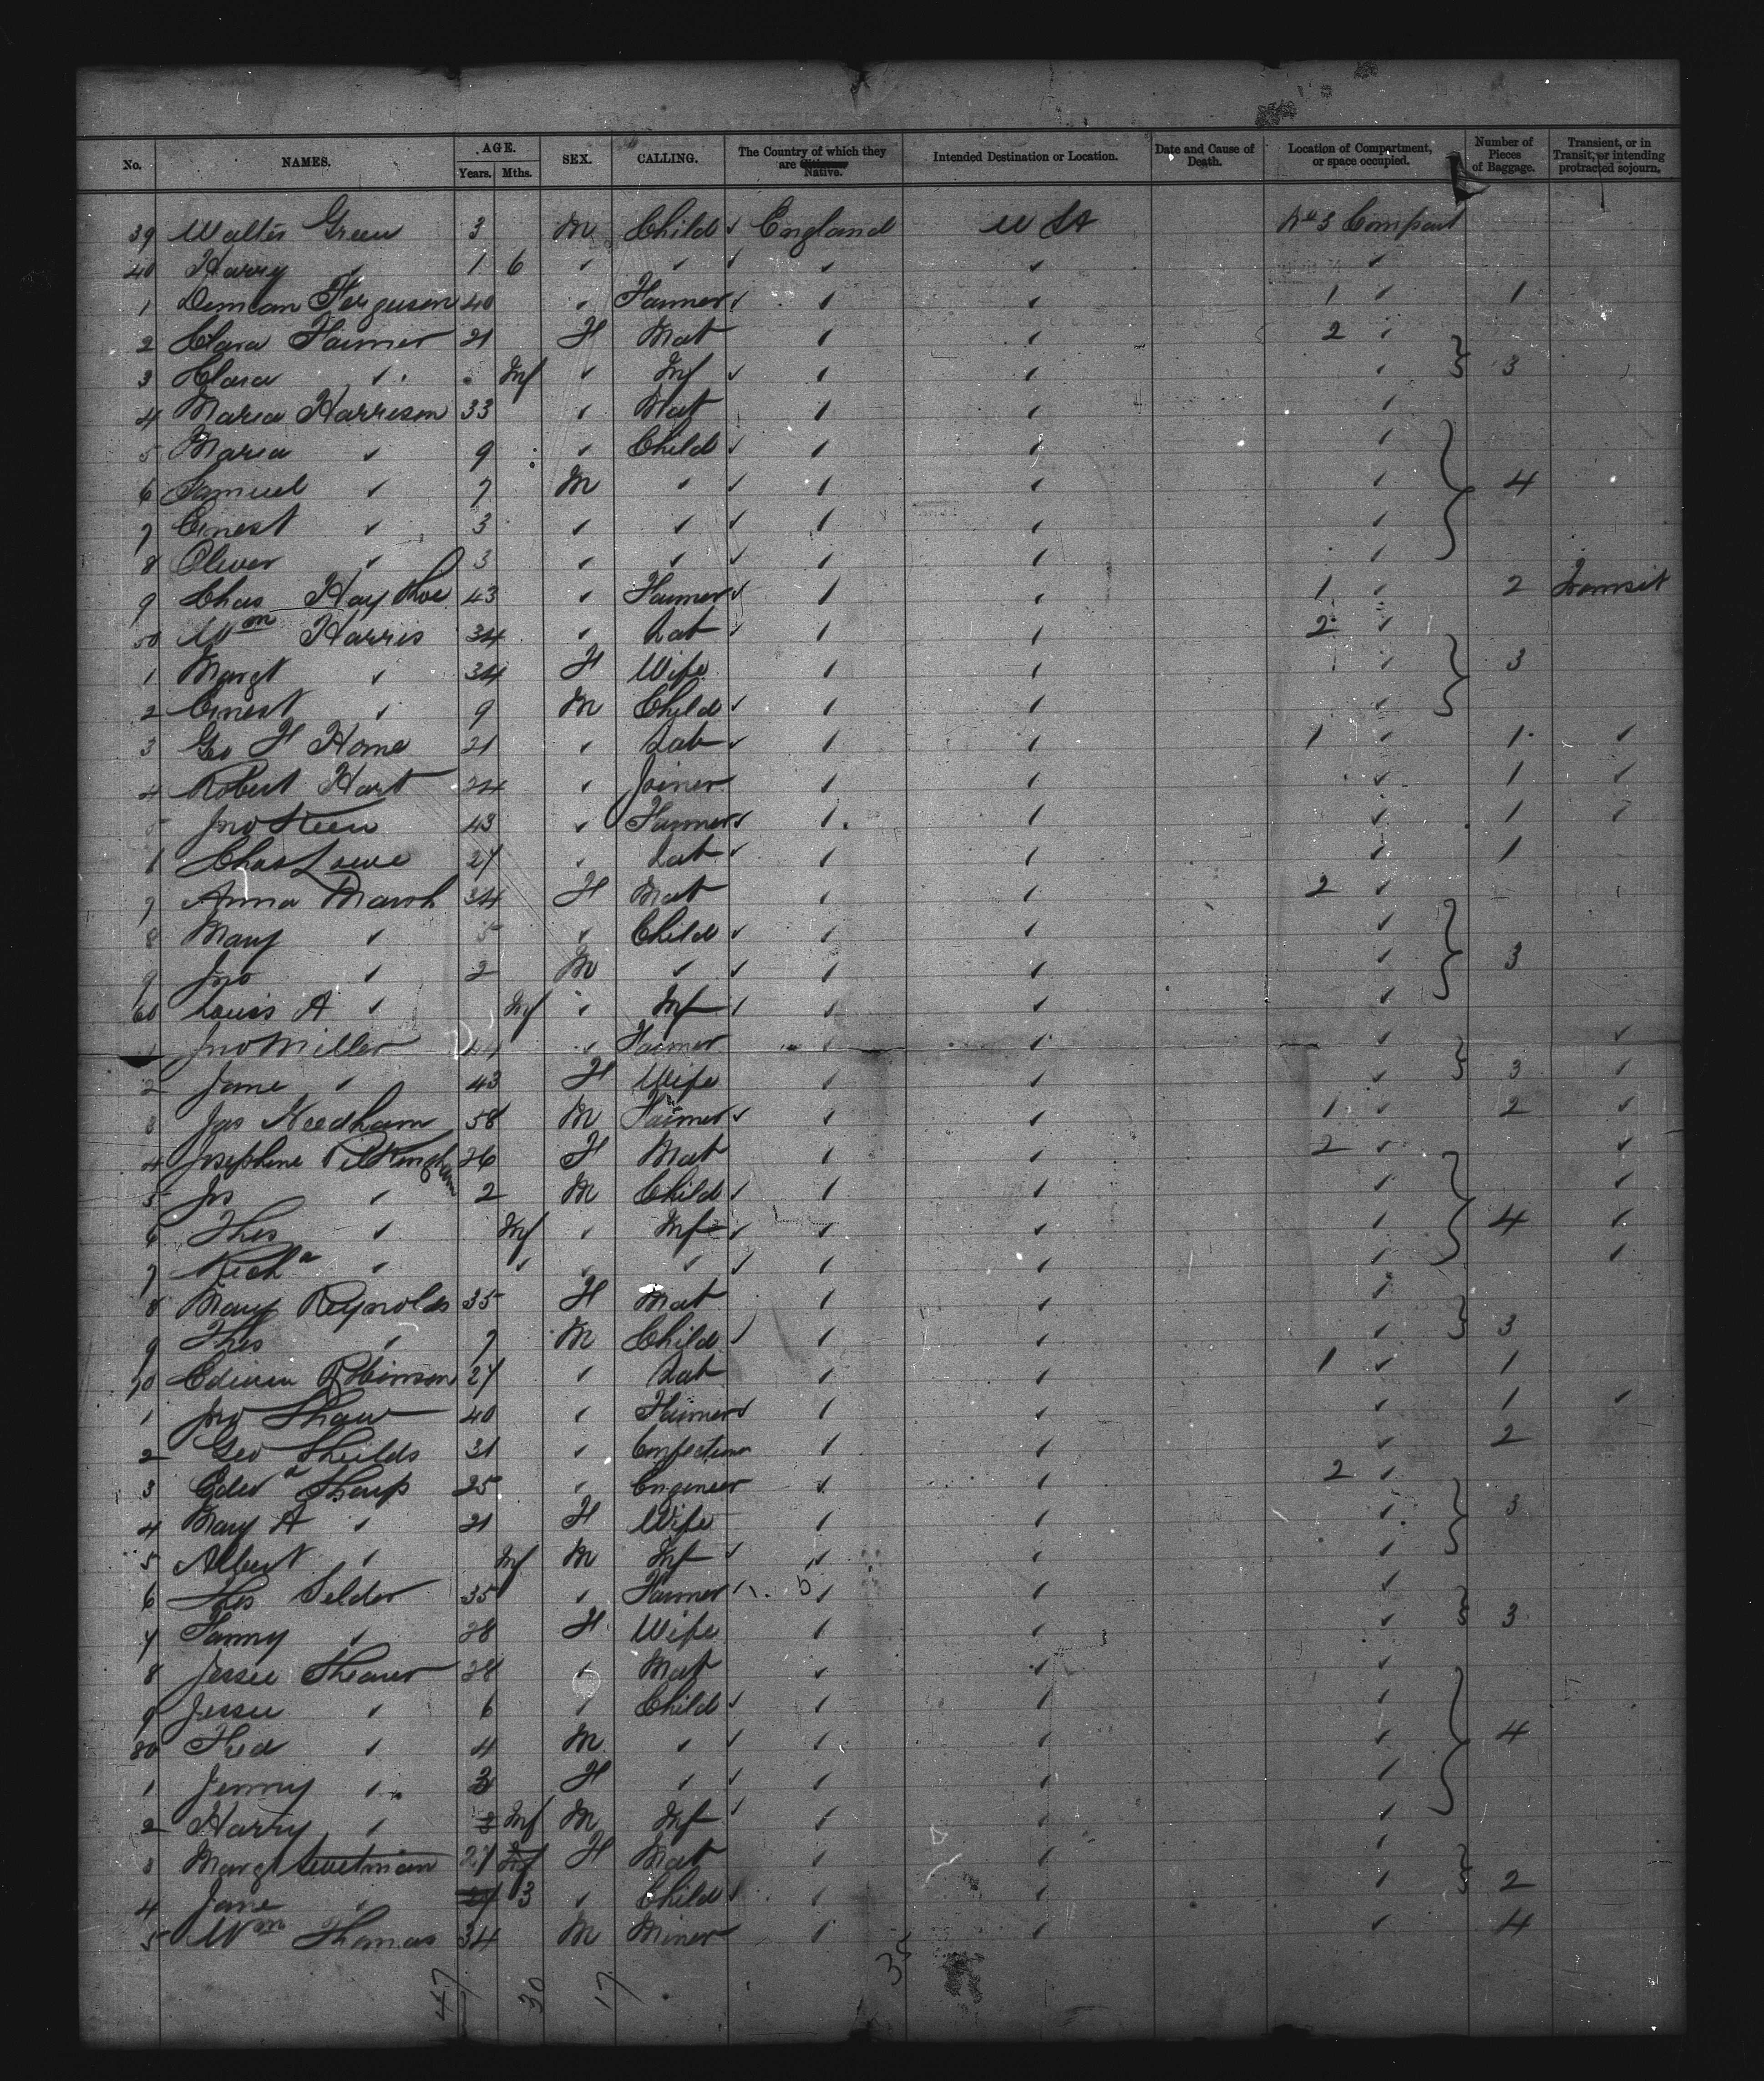 No. NAMES. AGE. Years. Mths. SEX. CALLING. The Country of which they are Citizens Native. Intended Destination or Location. Date and Cause of Death. Location of Compartment, or space occupied. Number of Pieces of Baggage. Transient, or in Transit, or intending protracted sojourn.
39 Walter Green 3 M Child ✓ England U St No 3 Compart
40 Harry ✓ 1 6 ✓ ✓ ✓ ✓ ✓ ✓
1 Duncan Ferguson 40 ✓ Farmer ✓ ✓ ✓ 1 ✓ 1
2 Clara Farmer 21 F Mat ✓ ✓ 2 ✓
3 Clara ✓ Inf ✓ Inf ✓ ✓ ✓ ✓ 3
4 Maria Harrison 33 ✓ Mat ✓ ✓ ✓
5 Maria ✓ 9 ✓ Child ✓ ✓ ✓ ✓
6 Samuel ✓ 7 M ✓ ✓ ✓ ✓ ✓ 4
7 Ernest ✓ 3 ✓ ✓ ✓ ✓ ✓ ✓
8 Oliver ✓ 3 ✓ ✓ ✓ ✓ ✓ ✓
9 Chas Hay 43 ✓ Farmer ✓ ✓ ✓ 1 ✓ 2 Transit
50 Wm Harris 34 ✓ Lab ✓ ✓ ✓ 2 ✓
1 Margt ✓ 34 F Wife ✓ ✓ ✓ 3
2 Ernest ✓ 9 M Child ✓ ✓ ✓ ✓
3 Geo F Home 21 ✓ Lab ✓ ✓ ✓ 1 ✓ 1 ✓
4 Robert Hart 24 ✓ Joiner ✓ ✓ ✓ 1 ✓
5 Jno Keen 43 ✓ Farmer ✓ ✓ ✓ ✓ 1 ✓
6 Chas Lowe 27 ✓ Lab ✓ ✓ ✓ ✓ 1
7 Anna Marsh 34 F Mat ✓ ✓ 2 ✓
8 Mary ✓ 5 ✓ Child ✓ ✓ ✓ ✓
9 Jno ✓ 2 M ✓ ✓ ✓ ✓ ✓ 3
60 Louis A ✓ Inf ✓ Inf ✓ ✓ ✓ ✓
1 Jno Miller 44 ✓ Farmer ✓ ✓ ✓ ✓
2 Jane ✓ 43 F Wife ✓ ✓ ✓ 3 ✓
3 Jas Needham 58 M Farmer ✓ ✓ ✓ 1 ✓ 2 ✓
4 Josephine 26 F Mat ✓ ✓ 2 ✓ ✓
5 Js ✓ 2 M Child ✓ ✓ ✓ ✓ ✓
6 Thos ✓ Inf ✓ Inf ✓ ✓ ✓ ✓ 4 ✓
7 Richd ✓ ✓ ✓ ✓ ✓ ✓ ✓ ✓ ✓
8 Mary Reynolds 35 F Mat ✓ ✓ ✓
9 Thos ✓ 7 M Child ✓ ✓ ✓ ✓ 3
70 Edwin Robinson 27 ✓ Lab ✓ ✓ 1 ✓ 1
1 Jno Shaw 40 ✓ Farmer ✓ ✓ ✓ ✓ 1 ✓
2 Geo Sheilds 31 ✓ Confectioner ✓ ✓ ✓ 2
3 Edwd Sharp 25 ✓ Engineer ✓ ✓ 2 ✓
4 Mary A ✓ 21 F Wife ✓ ✓ ✓ 3
5 Albert ✓ Inf M Inf ✓ ✓ ✓ ✓
6 Thos Seldor 35 ✓ Farmer ✓ ✓ ✓ ✓
7 Fanny ✓ 28 F Wife ✓ ✓ ✓ 3
8 Jessie Shearer 28 ✓ Mat ✓ ✓ ✓
9 Jessie ✓ 6 ✓ Child ✓ ✓ ✓ ✓
80 Fred ✓ 4 M ✓ ✓ ✓ ✓ ✓ 4
1 Jenny ✓ 3 F ✓ ✓ ✓ ✓ ✓
2 Harry ✓ Inf M Inf ✓ ✓ ✓ ✓
3 Margt 27 Inf F Mat ✓ ✓ ✓
4 Jane ✓ 27 3 ✓ Child ✓ ✓ ✓ ✓ 2
5 Wm Thomas 34 M Miner ✓ ✓ ✓ 4
47 30 17 35